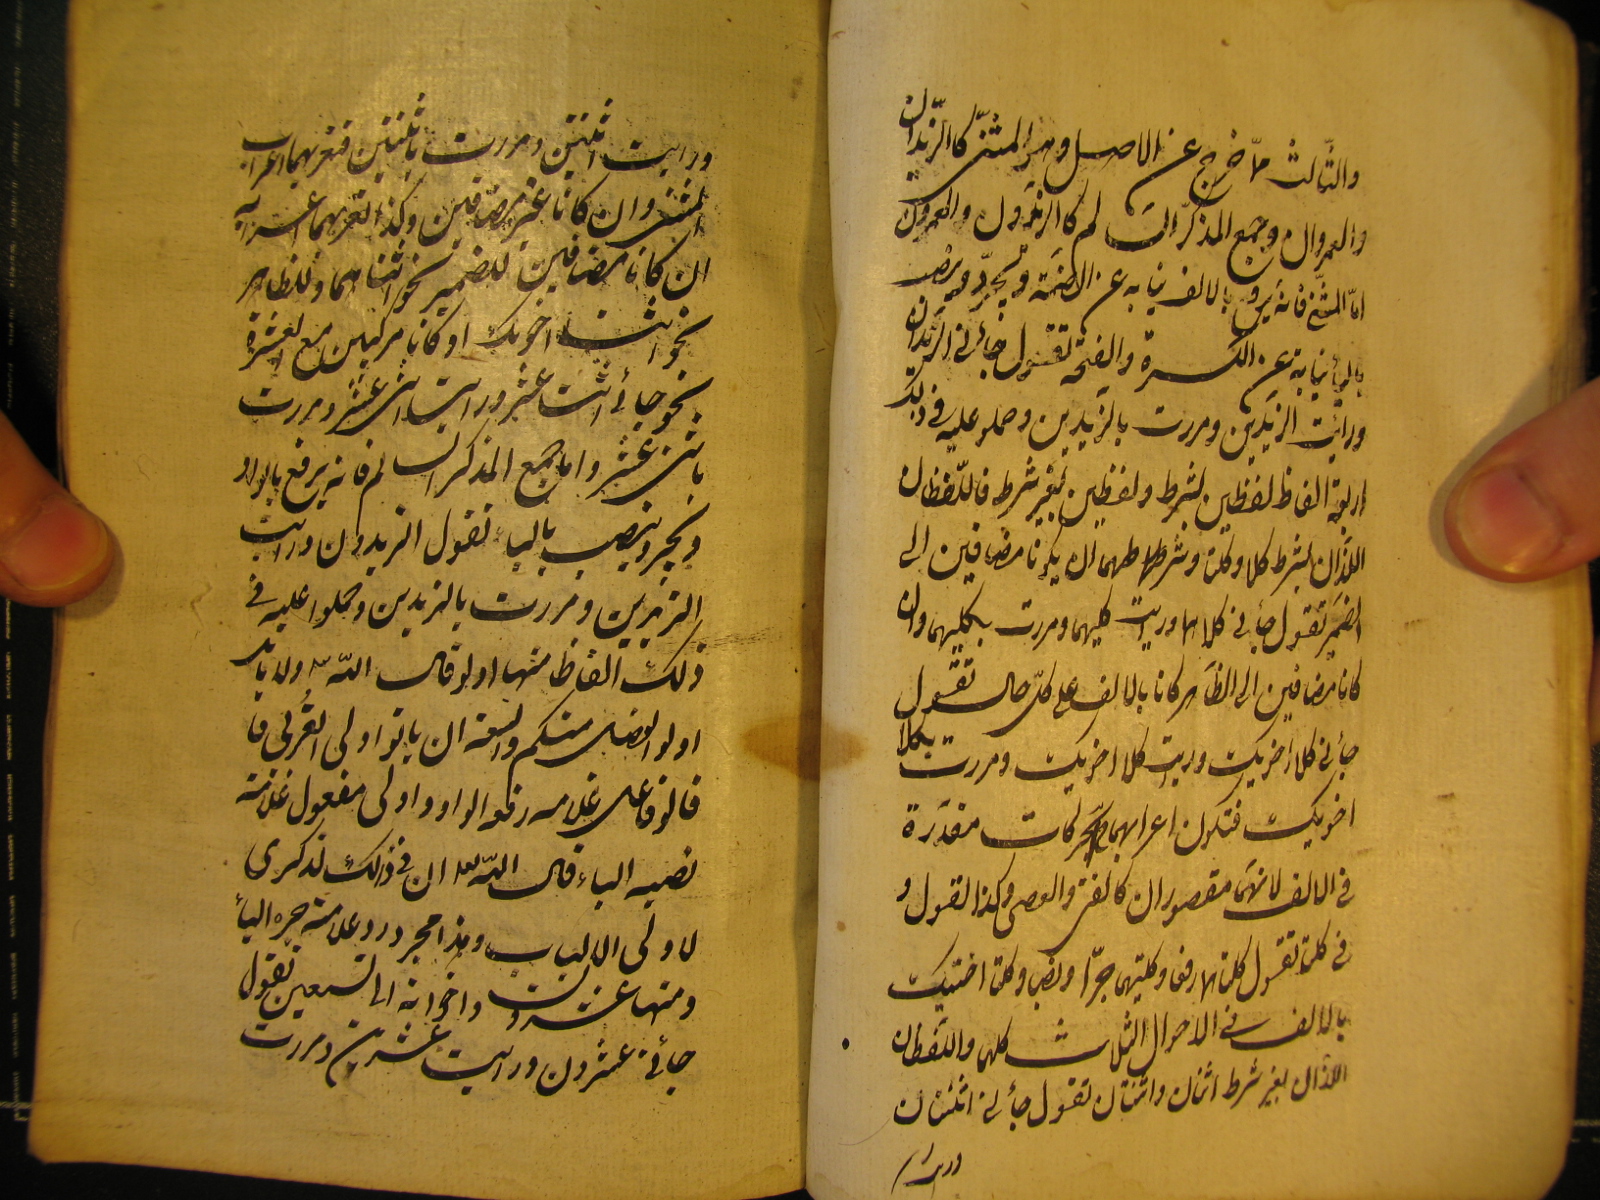 والثالث مما خرج عن الاصل وهو المثنى كالزيدان
والعمروان وجمع المذكر السالم كالزيدون والعمرون
اما المثنى فانه يرفع بالالف نيابة عن الضمة ويجر وينصب
بالياء نيابة عن الكسرة والفتحة تقول جائني الزيدان
ورائت الزيدين ومررت بالزيدين وحملو عليه في ذلك
اربعة الفاظ لفظين بشرط ولفظين بغير شرط فاللفظان
اللذان بشرط كلا وكلتا وشرطهما ان يكونا مضافين الى
الضمير تقول جائني كلاهما ورايت كليهما ومررت بكليهما وان
كانا مضافين الى الظاهر كانا بالالف على كل حال تقول
جائني كلا اخويك ورايت كلا اخويك ومررت بكلا
اخويك فتكون اعرابهما بحركات مقدرة
في الالف لانهما مقصوران كالفتى والعصى وكذا تقول و
في كلتا تقول كلتاهما رفعا وكليتهما جرا ونصبا وكلتا اختيك
بالالف في الاحوال الثلاث كلها واللفظان
اللذان بغير شرط اثنان واثنتان تقول جائني اثنتان
ورايت
ورايت اثنتين ومررت باثنتين فتعربهما اعراب
المثنى وان كانا غير مضافين وكذا تعربهما اعرابه
ان كانا مضافين للضمير نحو اثناهما وللظاهر
نحو اثنا اخويك او كانا مركبين مع العشرة
نحو جائني اثنا عشر ورايت اثني عشر ومررت
باثني عشر واما جمع المذكر السالم فانه يرفع بالواو
ويجر وينصب بالياء تقول الزيدون ورايت
الزيدين ومررت بالزيدين وحملوا عليه في
ذلك الفاظا منها اولو قال الله تع ولا ياتل
اولو الفضل منكم والسعة ان ياتوا اولى القربى فا
فالو فاعل علامه رفعه الواو واولى مفعول علامة
نصبه الياء قال الله تع ان في ذلك لذكرى
لاولى الالباب وهذا مجرور وعلامة جره الياء
ومنها عشرون واخواته الى التسعين تقول
جائني عشرون ورايت عشرين ومررت